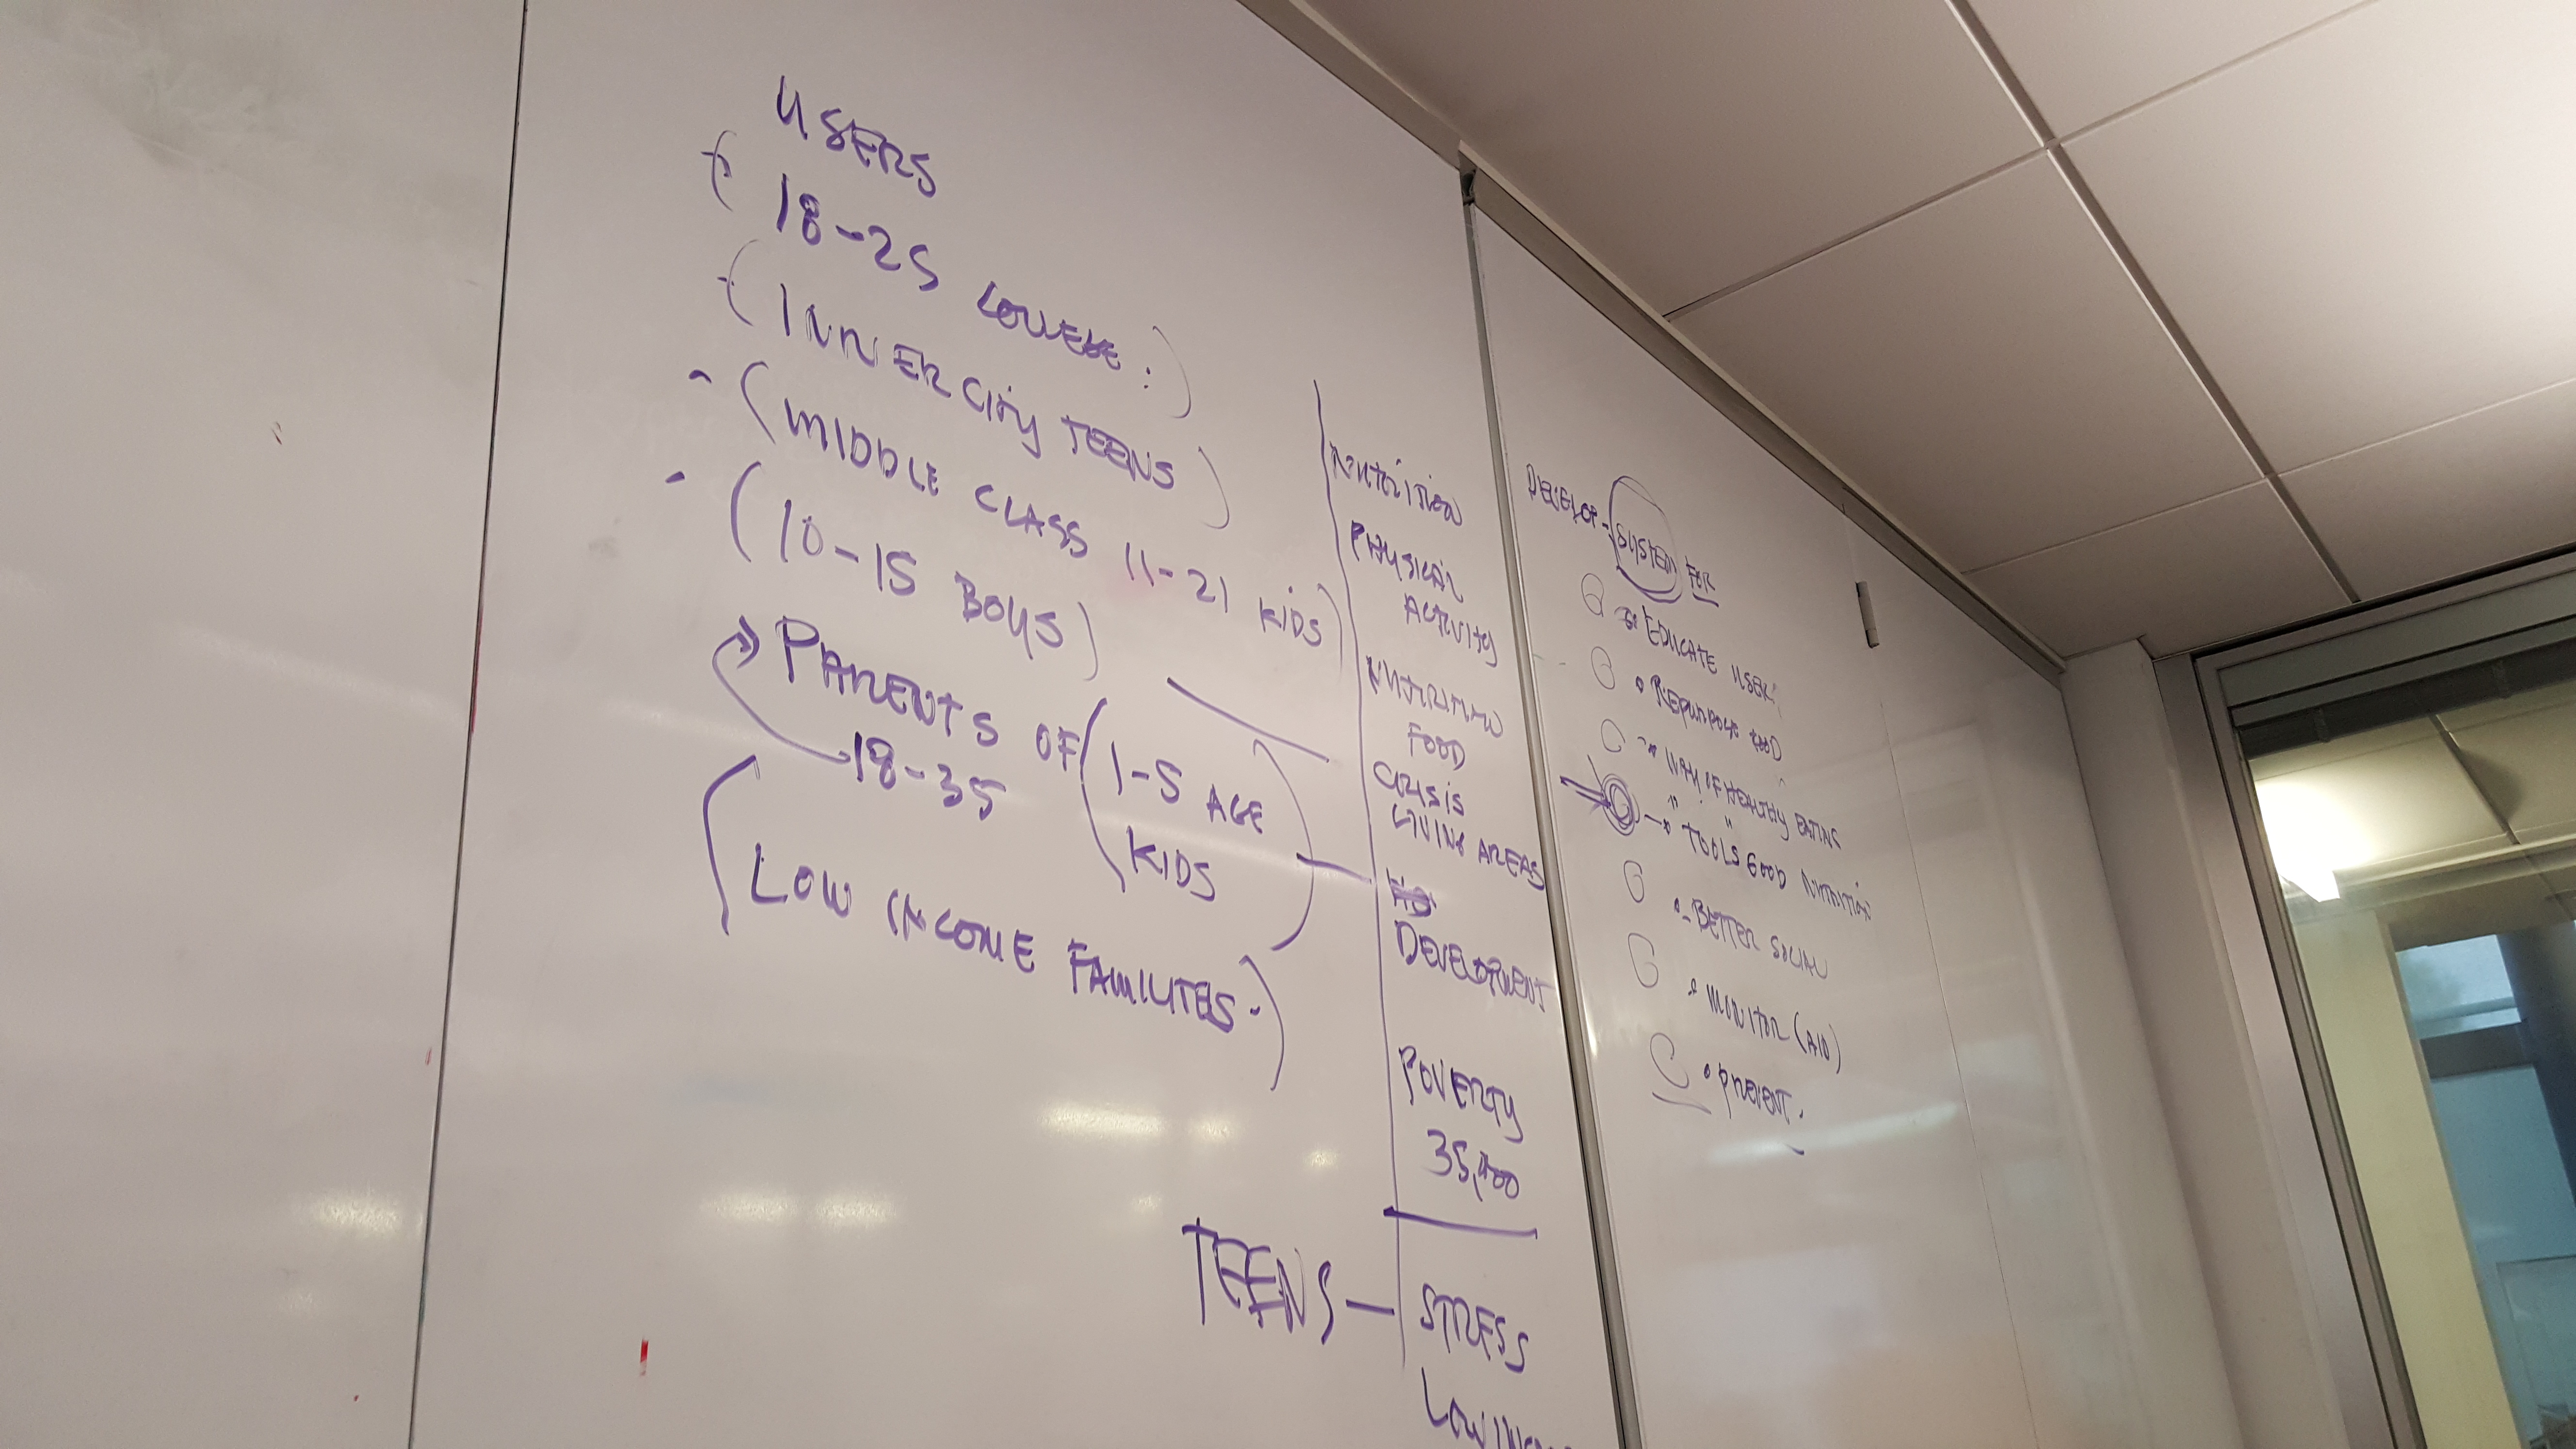 USERS
18-25 COLLEGE:)
(INNER CITY TEENS)
- (MIDDLE CLASS 11-21 KIDS)
- (10-15 BOYS)
PARENTS OF (1-5 AGE
18-35
KIDS)
(LOW INCOME FAMILITES.)
NUTRITION
PHYSICAL
ACTIVITY
FOOD
CRISIS
LIVING AREAS
DEVELOPMENT
POVERTY
TEENS — STRESS
DEVELOP - SYSTEM FOR
EDUCATE USER
REPURPOSE FOOD
WAY OF HEALTHY EATING
" " TOOLS GOOD NUTRITION
BETTER SOCIAL
MONITOR (AID)
PREVENT.